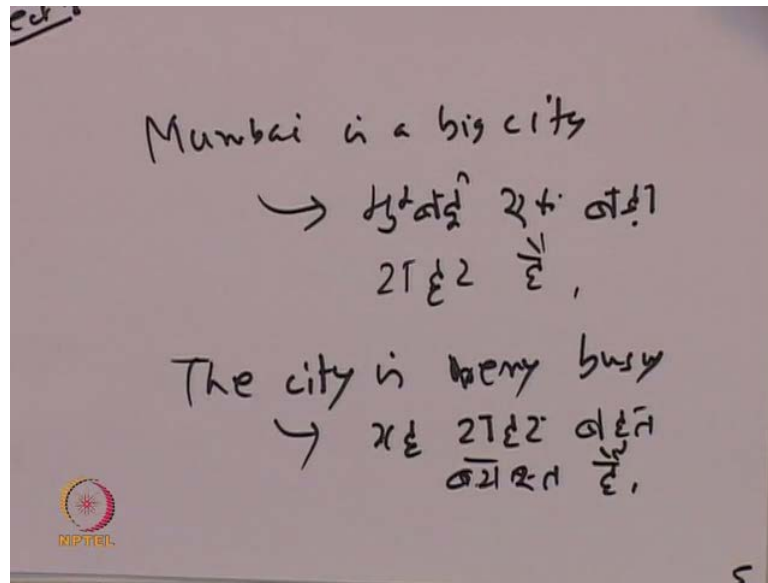 Mumbai is a big city
→ मुम्बई एक बड़ा
शहर है,
The city is very busy
→ यह शहर बहुत
व्यस्त है,
NPTEL